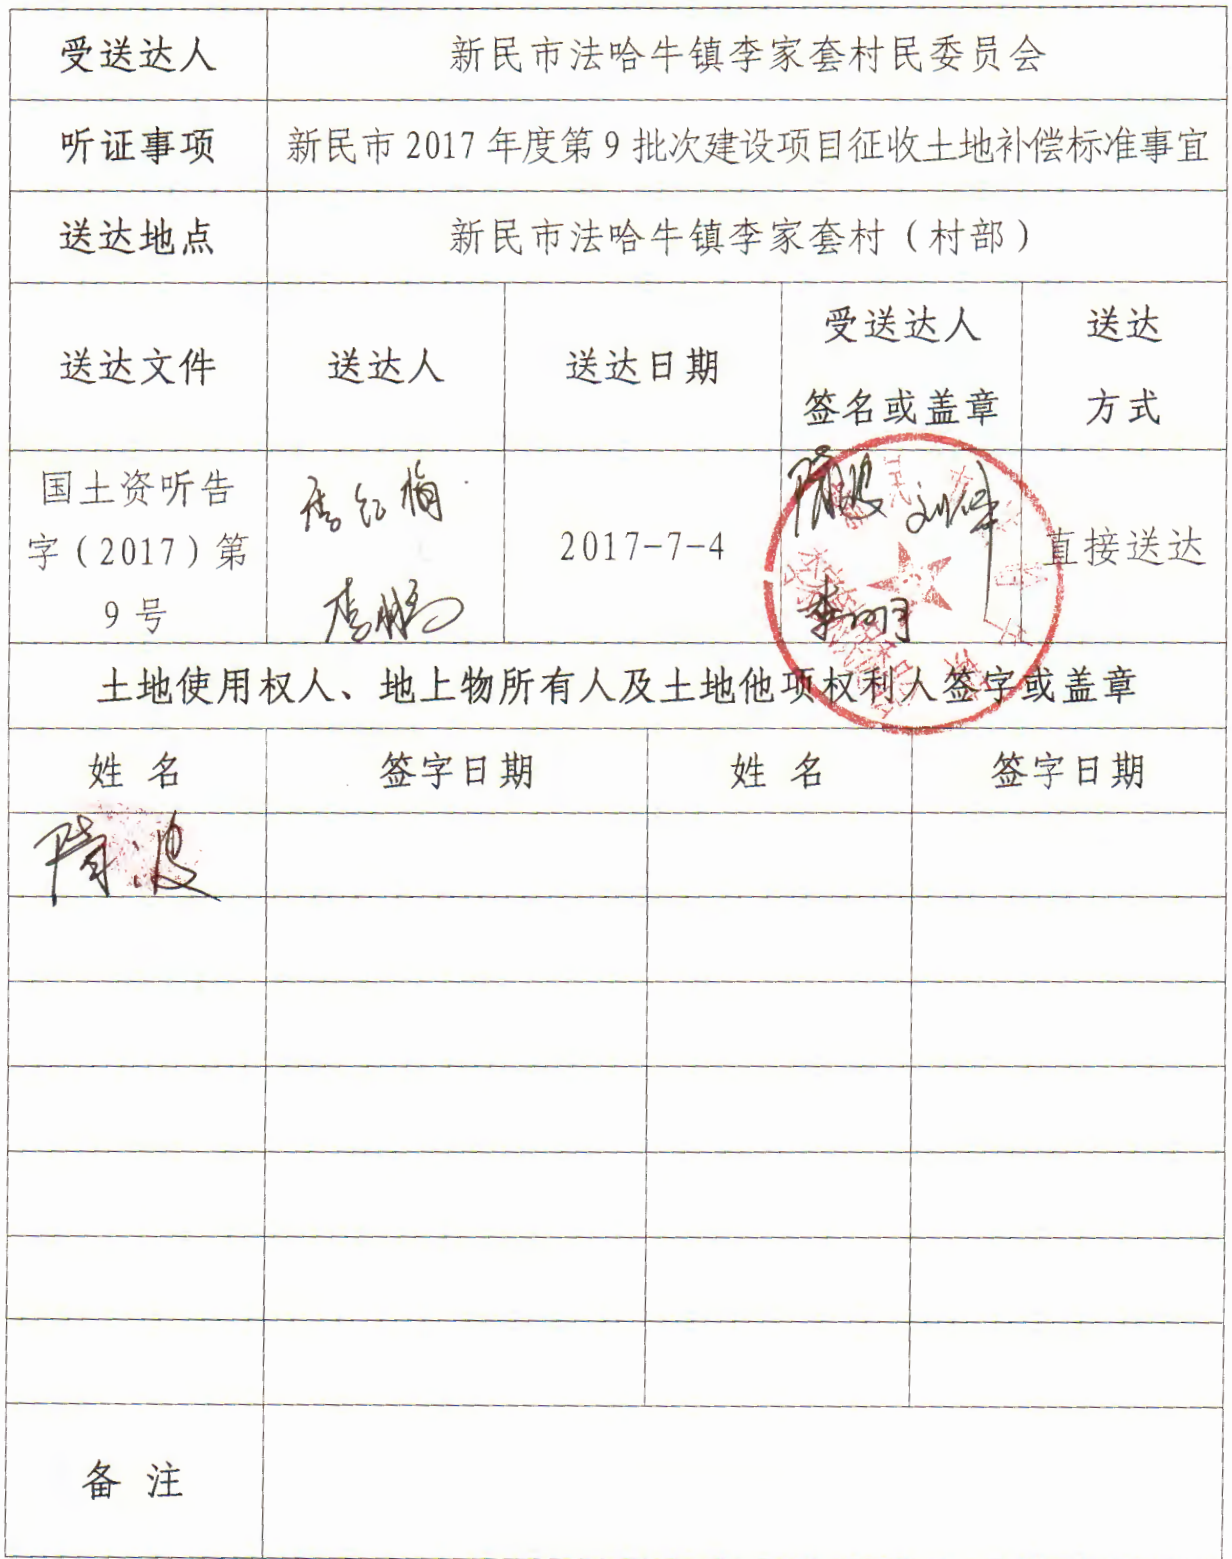 受送达人
新民市法哈牛镇李家套村民委员会
听证事项
新民市2017年度第9批次建设项目征收土地补偿标准事宜
送达地点
新民市法哈牛镇李家套村（村部）
送达文件
送达人
送达日期
受送达人
签名或盖章
送达
方式
国土资听告
字（2017）第
9号
李红梅
李鹏
2017-7-4
隋波
直接送达
土地使用权人、地上物所有人及土地他项权利人签字或盖章
姓 名
签字日期
姓 名
签字日期
隋波
备 注